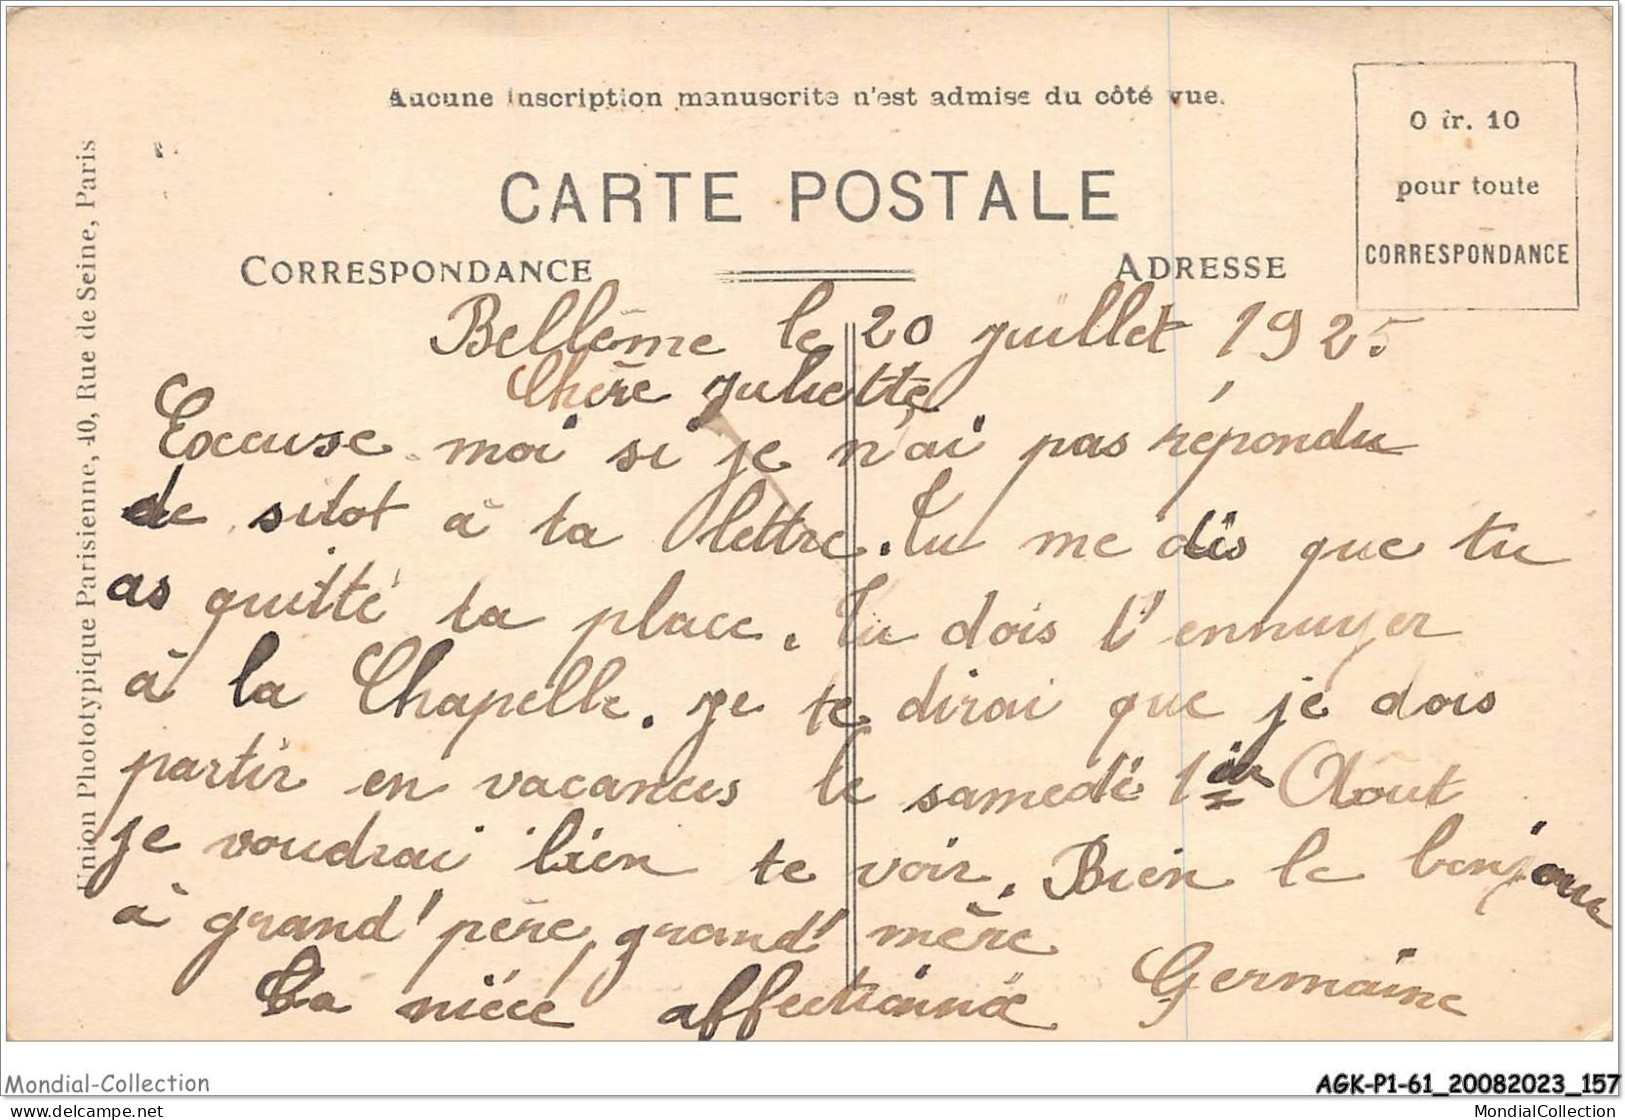 Aucune inscription manuscrite n'est admise du côté vue.
CARTE POSTALE
CORRESPONDANCE
ADRESSE
0 fr. 10
pour toute
CORRESPONDANCE
Union Phototypique Parisienne, 40, Rue de Seine, Paris
Bellême le 20 juillet 1925
Chère Juliette
Excuse moi si je n'ai pas répondu
de sitot à ta lettre. Tu me dis que tu
as quitté ta place. Tu dois t'ennuyer
à la Chapelle. Je te dirai que je dois
partir en vacances le samedi 1er Aout
je voudrai bien te voir. Bien le bonjour
à grand' père, grand' mère
Ta nièce affectionnée Germaine
Mondial-Collection
AGK-P1-61_20082023_157
delcampe.net
MondialCollection